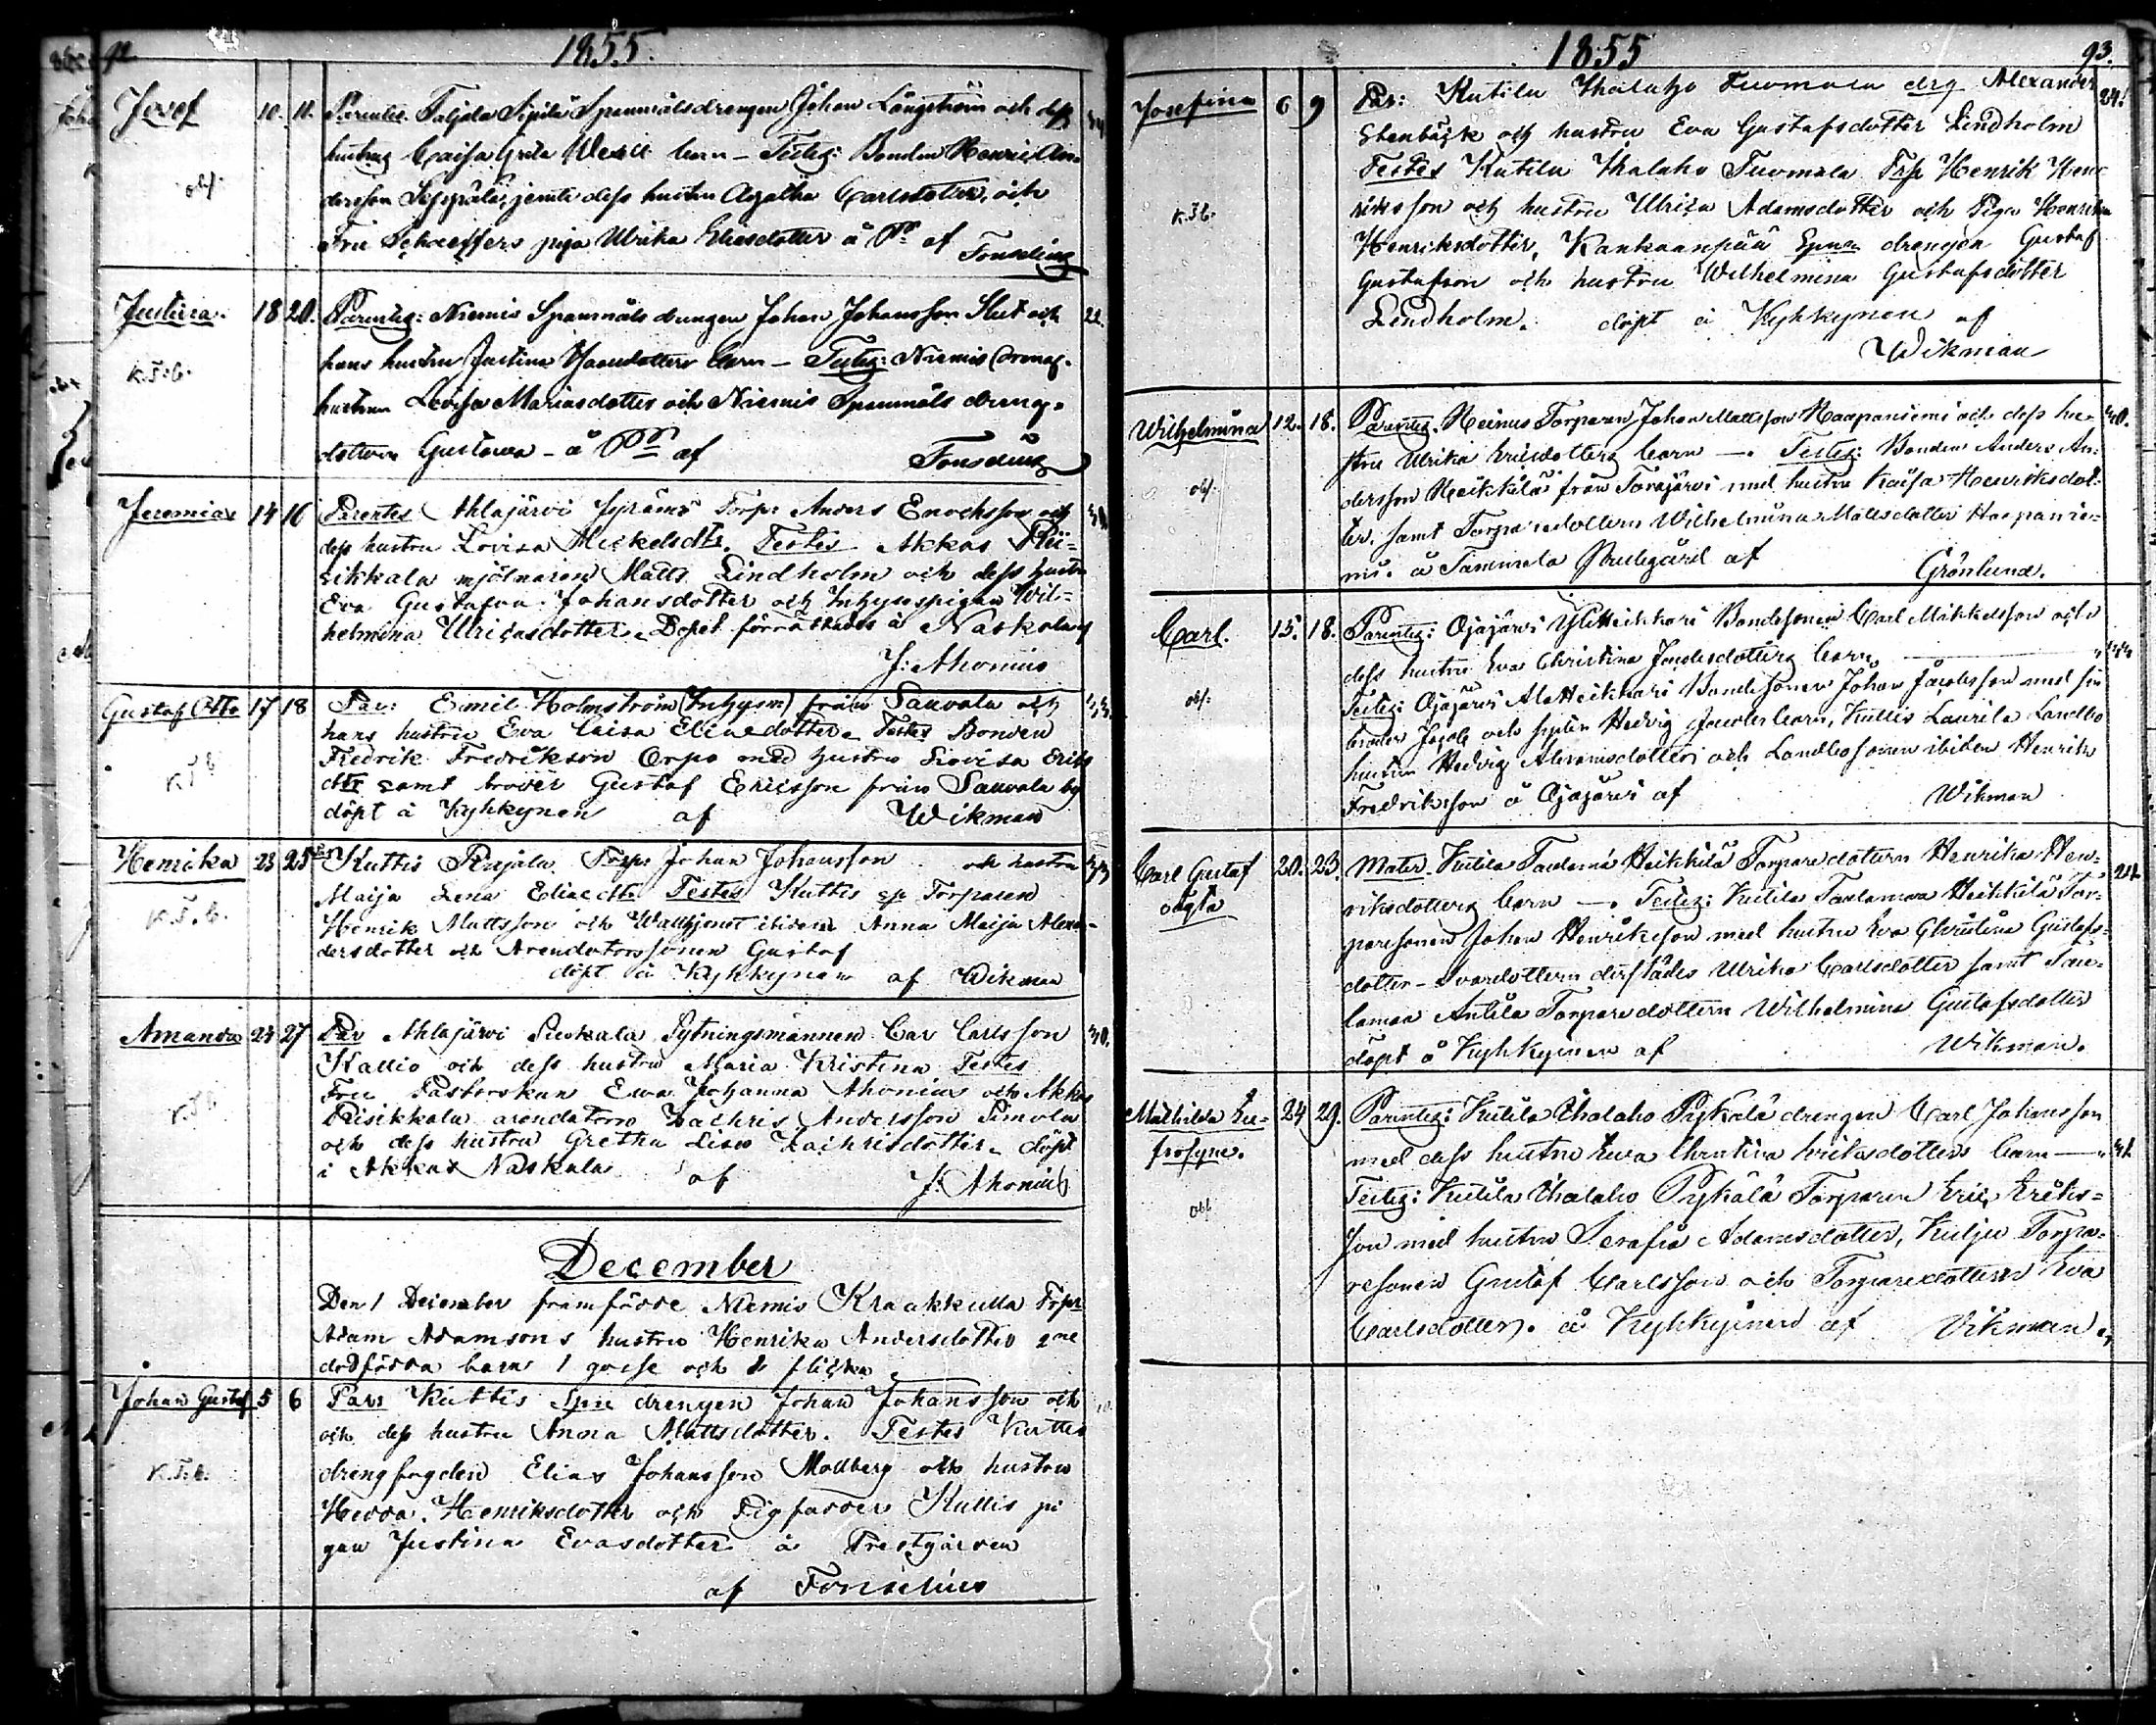 92
1855.
Josef 10. 11. Parentes. Taljala Sipilä Spannmålsdrengen Johan Långström och dess
hustrus Caisa Greta barn – Testes: Bonden Henric An-
dersson Seppälä, jemte dess hustru Agatha Carlsdotter, och
Fru Schaeffers piga Ulrika Eliasdotter å Pr. af Fonselius
Justina. 18 20. Parentes: Niemis Spannmåls drengen Johan Johansson Slut och 22.
K.T.b. hans hustru Justina barn – Testes: Niemis drengs-
hustrun Lovisa Mariasdotter och Niemis Spannmåls drengs-
dottern Gustava – å Pr. af Fonselius
Jeremias 14 16 Parentes Ahlajärvi Torpr Anders Enochsson och
dess hustru Lovisa Mickelsdtr. Testes Akkas Rii-
sikkala mjölnaren Matts Lindholm och dess hustru
Eva Gustafva Johansdotter och Inhysespigan Wil-
helmina Ulricasdotter. Dopet förrättades å Naskala af
J: Ahonius
Gustaf Otto 17 18 Par: Emil Holmström (Inhysm) från Sauvala och
hans hustru Eva Caisa Eliaedotter. Testes Bonden
Fredrik Fredrikson Orpo med hustru Lovisa Eriks
dtr samt broder Gustaf Ericsson från Sauvala by
döpt å Kyhkynen af Wikman
Henrika 23 25 Kuttis Rajala Torpr Johan Johansson och hustru 33
K.T.b. Maija Lena Eliaedtr. Testes Kuttis Torparen
Henrik Mattsson och Walltjenst ibidem Anna Maija Alexan-
dersdotter och Arendatorssonen Gustaf
döpt å Kyhkynen af Wikman
Amanda 24 27 Par Ahlajärvi Sytningsmannen Carl Carlsson 30.
Kallio och dess hustru Maria Kristina Testes
Fru Pastorskan Eva Johanna Ahonius och Akkas
Riisikkala arendatorn Zachris Andersson Simola
och dess hustru Gretha Lisa Zachrisdotter. döpt
i Akkas Naskala af J. Ahonius
December
Den 1 December framfödde Niemis Kraakkulla Torpr
Adam Adamsons hustru Henrika Andersdotter 2ne
dödfödda barn 1 gosse och 1 flicka
Johan Gustaf 5 6 Pars Kuttis Spm drengen Johan Johansson och
och dess hustru Anna Mattsdotter. Testes Kuttis
K.T.b. drengfogden Elias Johansson Mollberg och hustru
Hedda Henriksdotter och Kuttis pi
gan Justina Evasdotter å Prestgården
af Fonselius
1855 93.
Josefina 6 9 Par: Kutila Thalaho Tuomala drg Alexander 24.
Stenbäck och hustru Eva Gustafsdotter Lindholm
Testes Kutila Thalaho Tuomala Trp Henrik Hen-
K.T.b. riksson och hustru Ulrica Adamsdotter och Piga Henrika
Henriksdotter, Kankaanpää Spm drengen Gustaf
Gustafson och hustru Wilhelmina Gustafsdotter
Lindholm. döpt å Kyhkynen af
Wikman
Wilhelmina 12. 18. Parentes. Heinus Torparn Johan Mattsson Haapaniemi och dess hu-
stru Ulrika Ericsdotters barn –. Testes: Bonden Anders An-
dersson Heikkilä från Torajärvi med hustru Kaisa Henriksdot-
ter, samt Torparedottern Wilhelmina Mattsdotter Haapanie-
mi. å Tammela Prestegård af Grönlund.
Carl. 15. 18. Parentes: Ojajärvi Bondesonen Carl Mikkelsson och
dess hustru Eva Christina barn
Testes: Ojajärvi Bondesonen Johan Jacobsson med sin
broder Jacob och syster Hedvig Jacobs barn, Kuttis Laurila Landbo
hustrun Hedvig Abramsdotter och Landbosonen ibidem Henrik
Fredriksson å Ojajärvi af Wikman
Carl Gustaf 20. 23. Mater. Kutila Heikkilä Torparedottern Henrika Hen- 24.
oägta riksdotters barn –. Testes: Kutila Heikkilä Tor-
paresonen Johan Henriksson med hustru Eva Christina Gustafs-
dotter – Svardottern derstädes Ulrika Carlsdotter samt
Anttila Torparedottern Wilhelmina Gustafsdotter
döpt å Kyhkynen af Wikman.
Mathilda Eu- 24 29. Parentes: Kutila Thalaho Pyhälä drengen Carl Johansson
frosyne. med dess hustru Eva Christina Eriksdotters barn
Testes: Kutila Thalaho Pyhälä Torparen Eric Eriks-
son med hustru Serafia Adamsdotter, Kulju Torpa-
resonen Gustaf Carlsson och Torparedottern Eva
Carlsdotter. å Kyhkynen af Vikman.